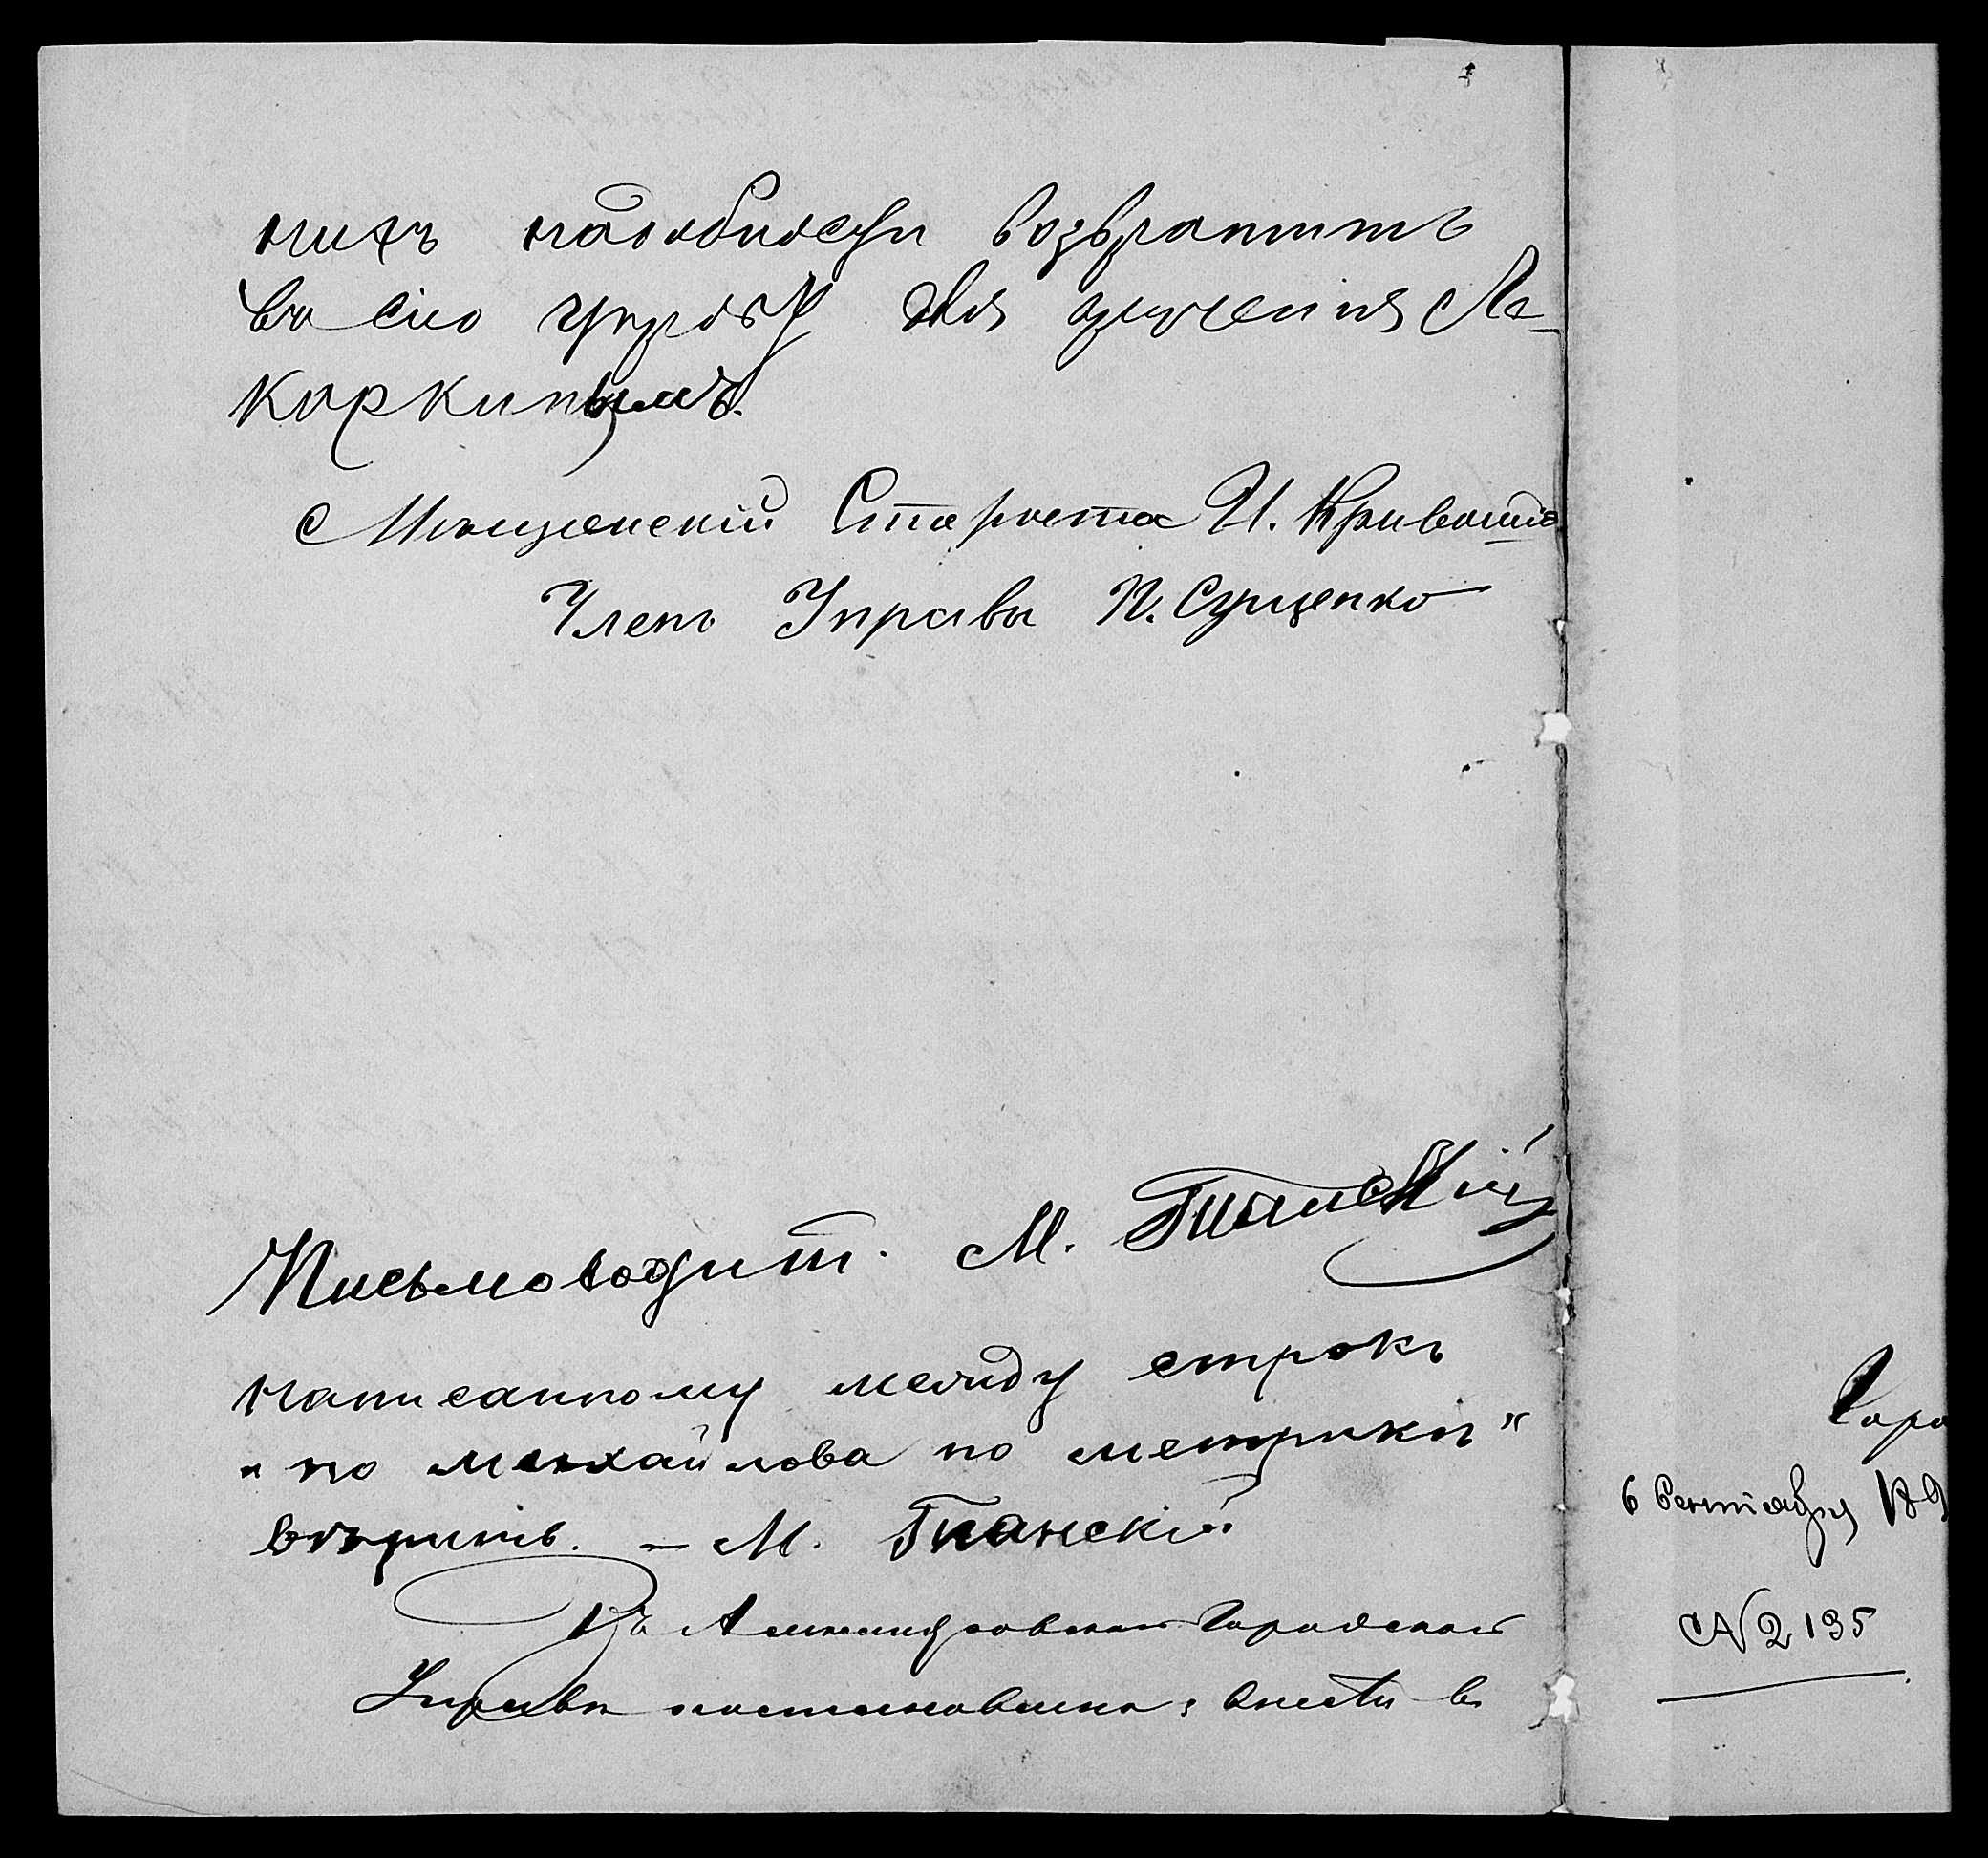 нихъ надобности возвратить
въ сію управу для врученія Ма-
каркинымъ.
Мѣщанскій Староста И. Кривоши
Членъ Управы П. Сущенко
Письмоводит. М. Гканскій
Написанному между строкъ
„по михайлова по метрикъ“
вѣрить. – М. Гканскій
Въ Александровской Городской
Управѣ постановлено: внести въ
Горо
6 Сентября 189
№ 2135